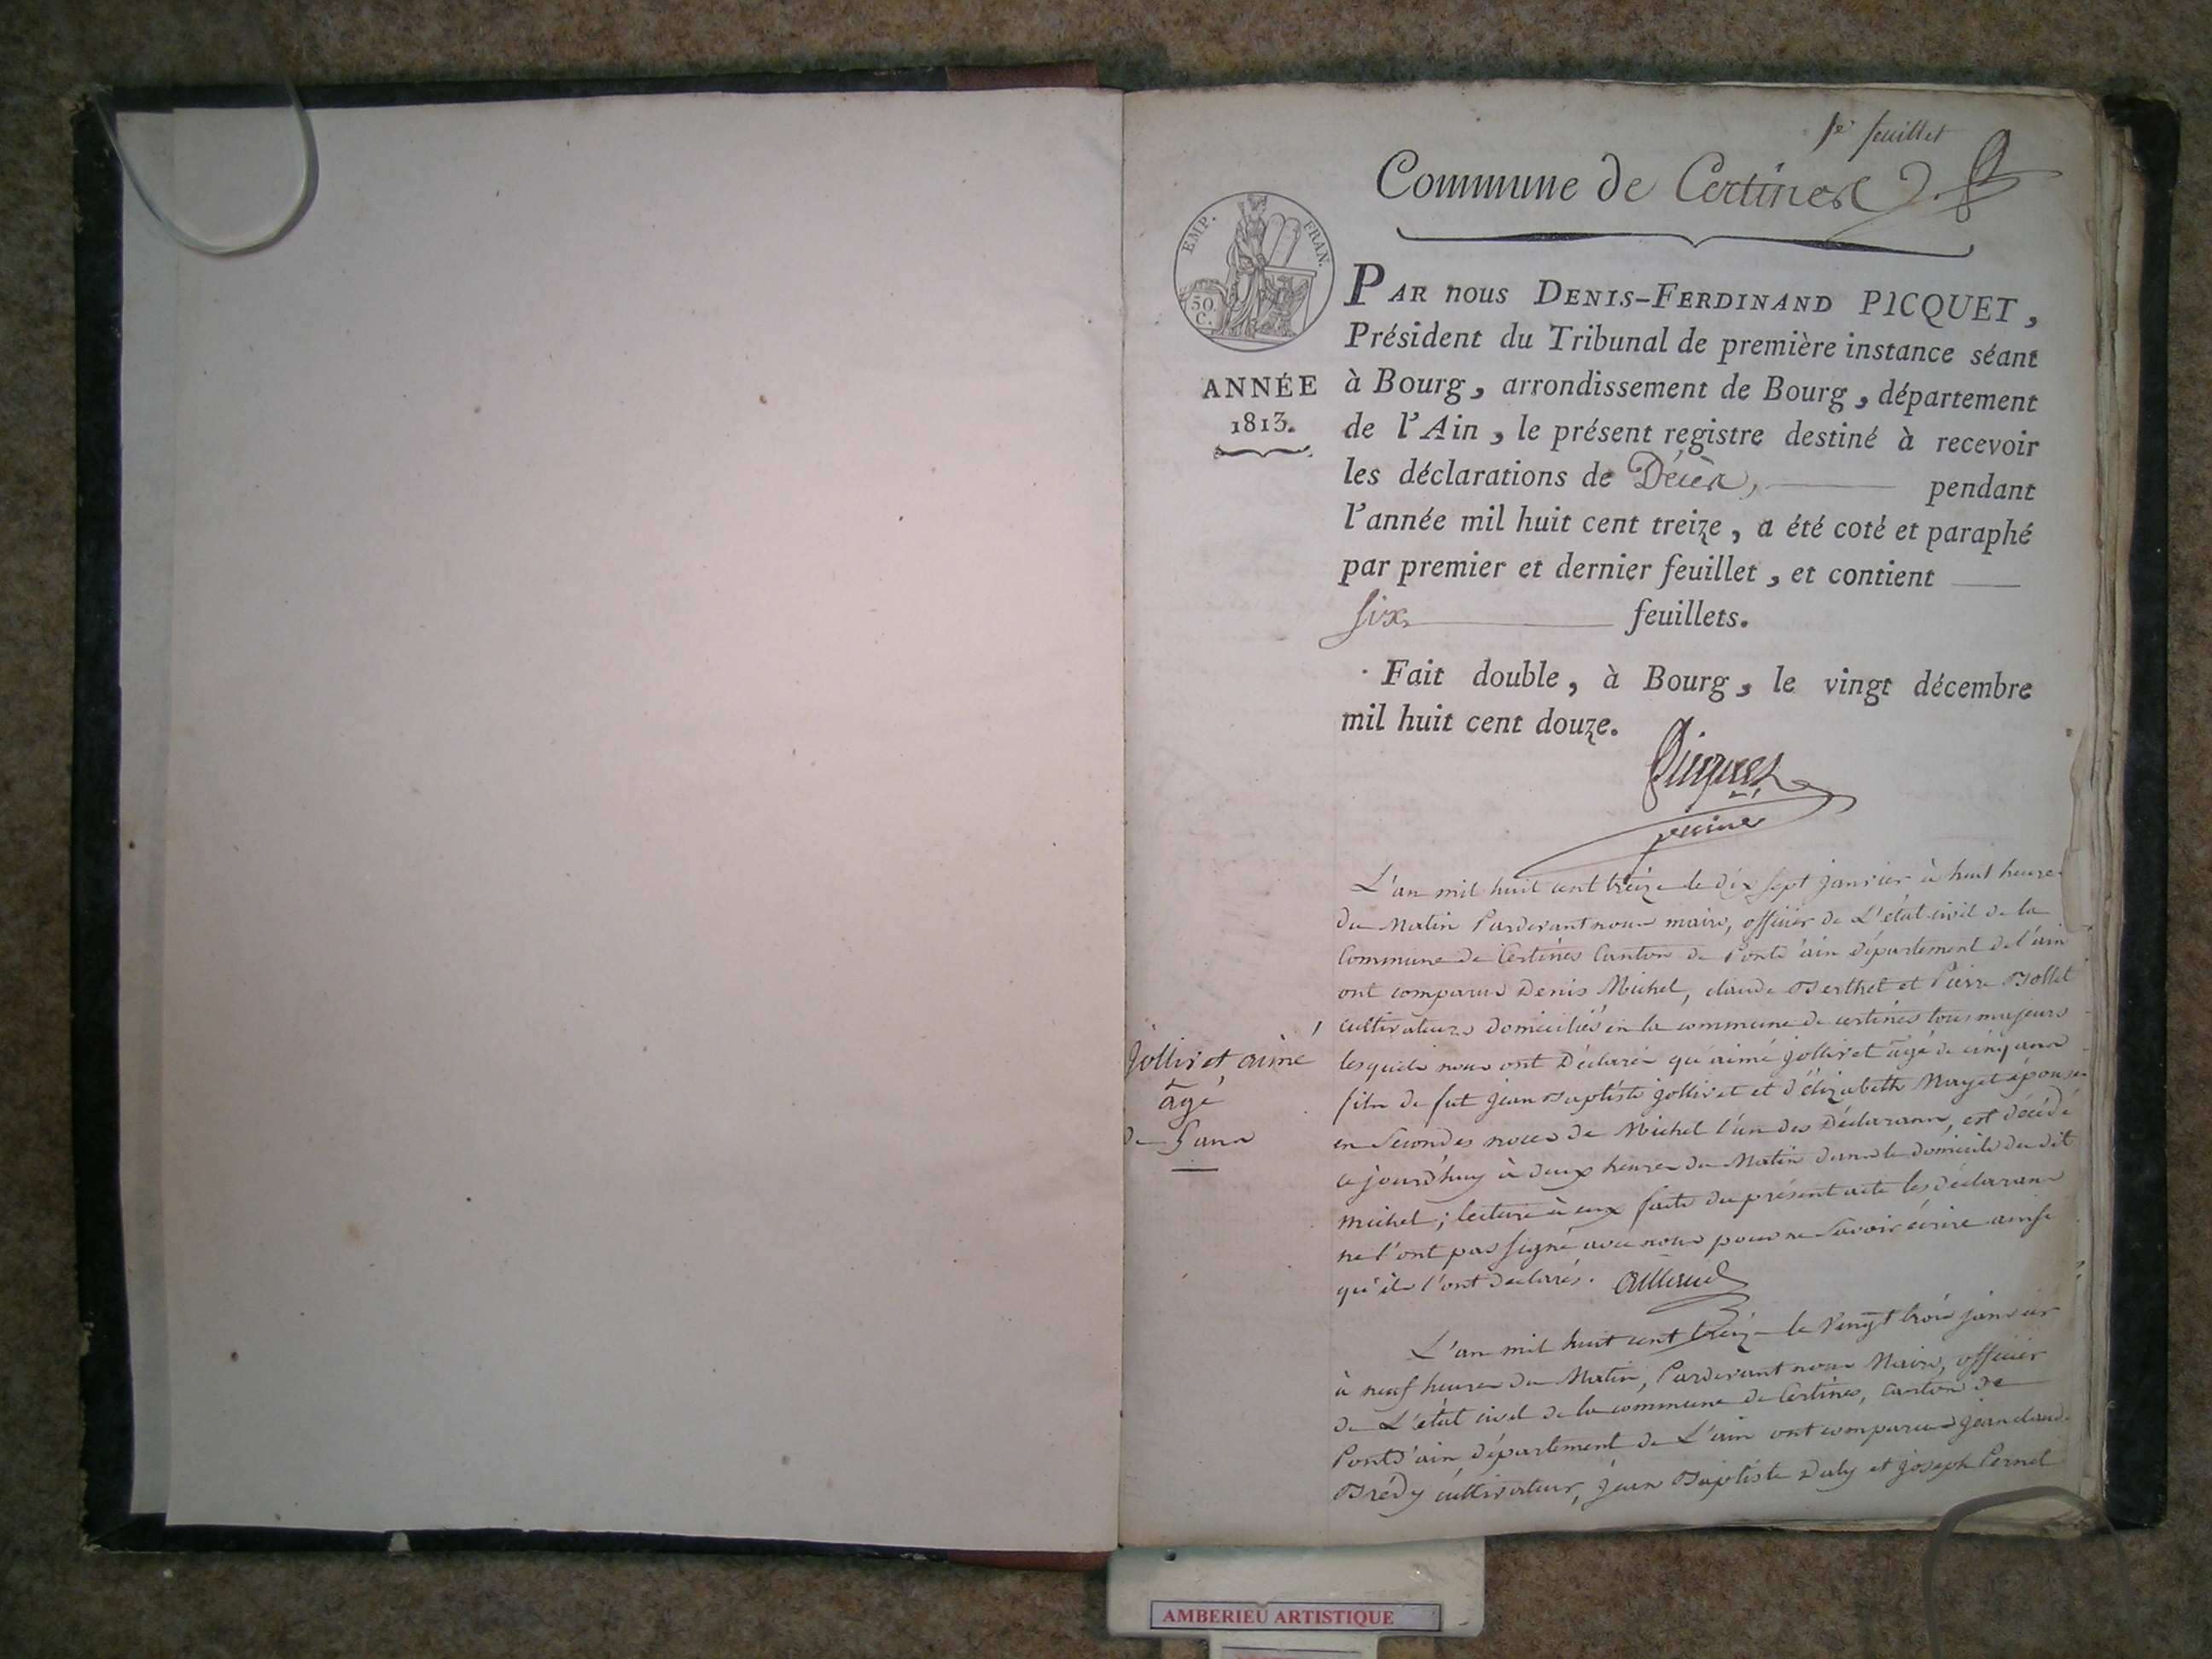 1er feuillet
Commune de Certines
EMP. FRAN.
50
C.
ANNÉE
1813.
PAR nous DENIS-FERDINAND PICQUET,
Président du Tribunal de première instance séant
à Bourg, arrondissement de Bourg, département
de l'Ain, le présent registre destiné à recevoir
les déclarations de Décès, pendant
l'année mil huit cent treize, a été coté et paraphé
par premier et dernier feuillet, et contient
six feuillets.
Fait double, à Bourg, le vingt décembre
mil huit cent douze.
Picquet
Jollivet aimé
âgé
de 5 ans
1
L'an mil huit cent treize le dix sept janvier à huit heures
du Matin Pardevant nous maire, officier de L'état civil de la
Commune de Certines Canton de Pontd'ain département de l'ain
ont comparus Denis Michel, claude Berthet et Pierre Bollet
cultivateurs domiciliés en la commune de certines tous majeurs
lesquels nous ont Déclarés qu'aimé jollivet âgé de cinq ans
fils de fut jean Baptiste jollivet et d'élizabeth Mayet épouse
en Secondes noces de Michel l'un des Déclarans, est décédé
cejourd'huy à deux heures du Matin dans le domicile du dit
michel; lecture à eux faite du présent acte les déclarans
ne l'ont pas signé avec nous pour ne Savoir écrire ainsi
qu'ils l'ont declarés.
L'an mil huit cent treize le vingt trois janvier
à neuf heures du Matin, Pardevant nous Maire, officier
de L'état civil de la commune de Certines, canton de
Pontd'ain département de L'ain ont comparus jean claude
Brédy cultivateur, jean Baptiste Daly et joseph Pernet
AMBERIEU ARTISTIQUE